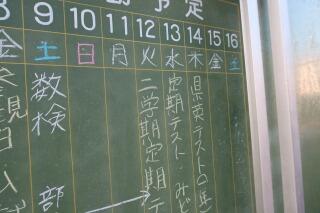 予定
8 9 10 11 12 13 14 15 16
金 土 日 月 火 水 木 金 土
参観日
数検
部
二学期定期テ
定期テスト
県英テストの